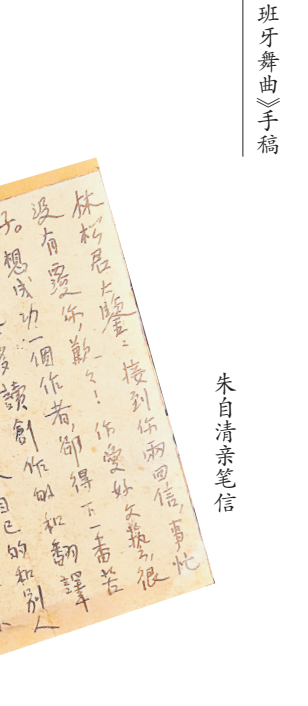 班牙舞曲》手稿
朱自清亲笔信
林松君大鑒：接到你兩回信，事忙
沒有覆你，歉々！你愛好文藝，很
子。想成功一個作者，卻得下一番苦
多讀創作的和翻譯
自己的和別人